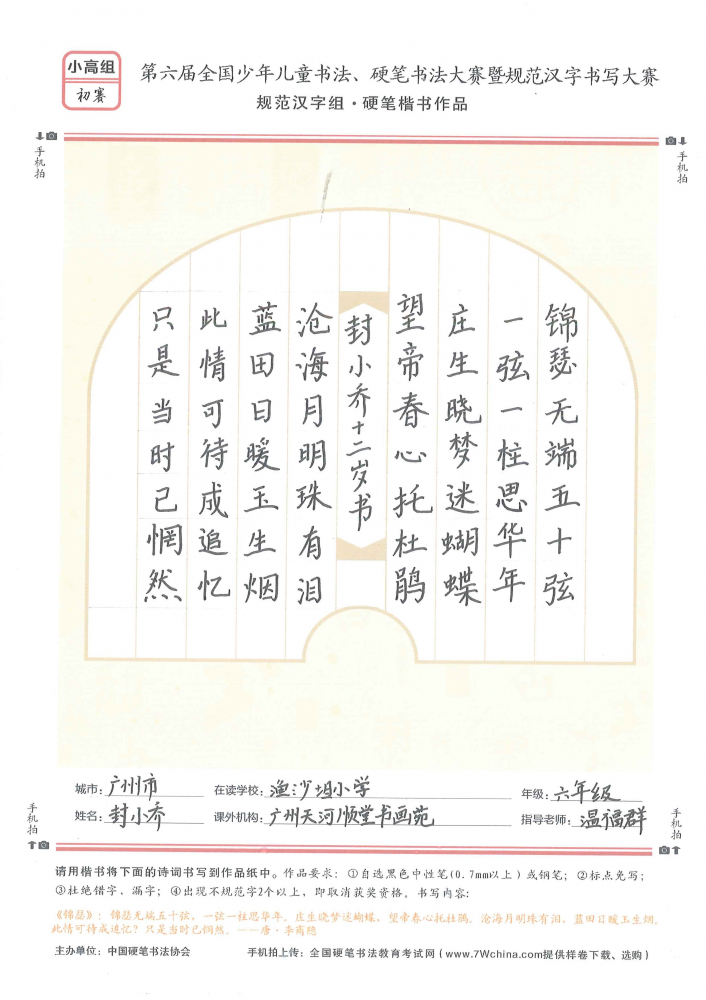 小高组
初赛
第六届全国少年儿童书法、硬笔书法大赛暨规范汉字书写大赛
规范汉字组·硬笔楷书作品
手机拍
手机拍
锦瑟无端五十弦
一弦一柱思华年
庄生晓梦迷蝴蝶
望帝春心托杜鹃
封小乔十二岁书
沧海月明珠有泪
蓝田日暖玉生烟
此情可待成追忆
只是当时已惘然
城市：广州市 在读学校：渔沙坦小学 年级：六年级
姓名：封小乔 课外机构：广州天河顺堂书画苑 指导老师：温福群
手机拍
手机拍
请用楷书将下面的诗词书写到作品纸中。作品要求：①自选黑色中性笔(0.7mm以上)或钢笔；②标点免写；
③杜绝错字、漏字；④出现不规范字2个以上，即取消获奖资格。书写内容：
《锦瑟》：锦瑟无端五十弦，一弦一柱思华年。庄生晓梦迷蝴蝶，望帝春心托杜鹃。沧海月明珠有泪，蓝田日暖玉生烟。
此情可待成追忆？只是当时已惘然。——唐·李商隐
主办单位：中国硬笔书法协会 手机拍上传：全国硬笔书法教育考试网（www.7Wchina.com提供样卷下载、选购）